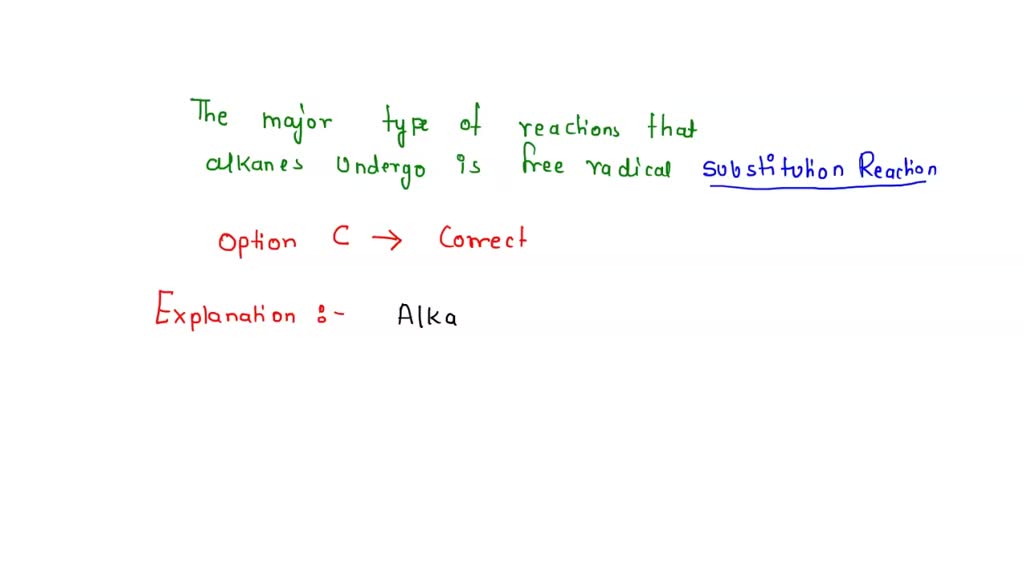 The major type of reactions that
alkanes undergo is free radical substitution Reaction
option C → Correct
Explanation :- Alka